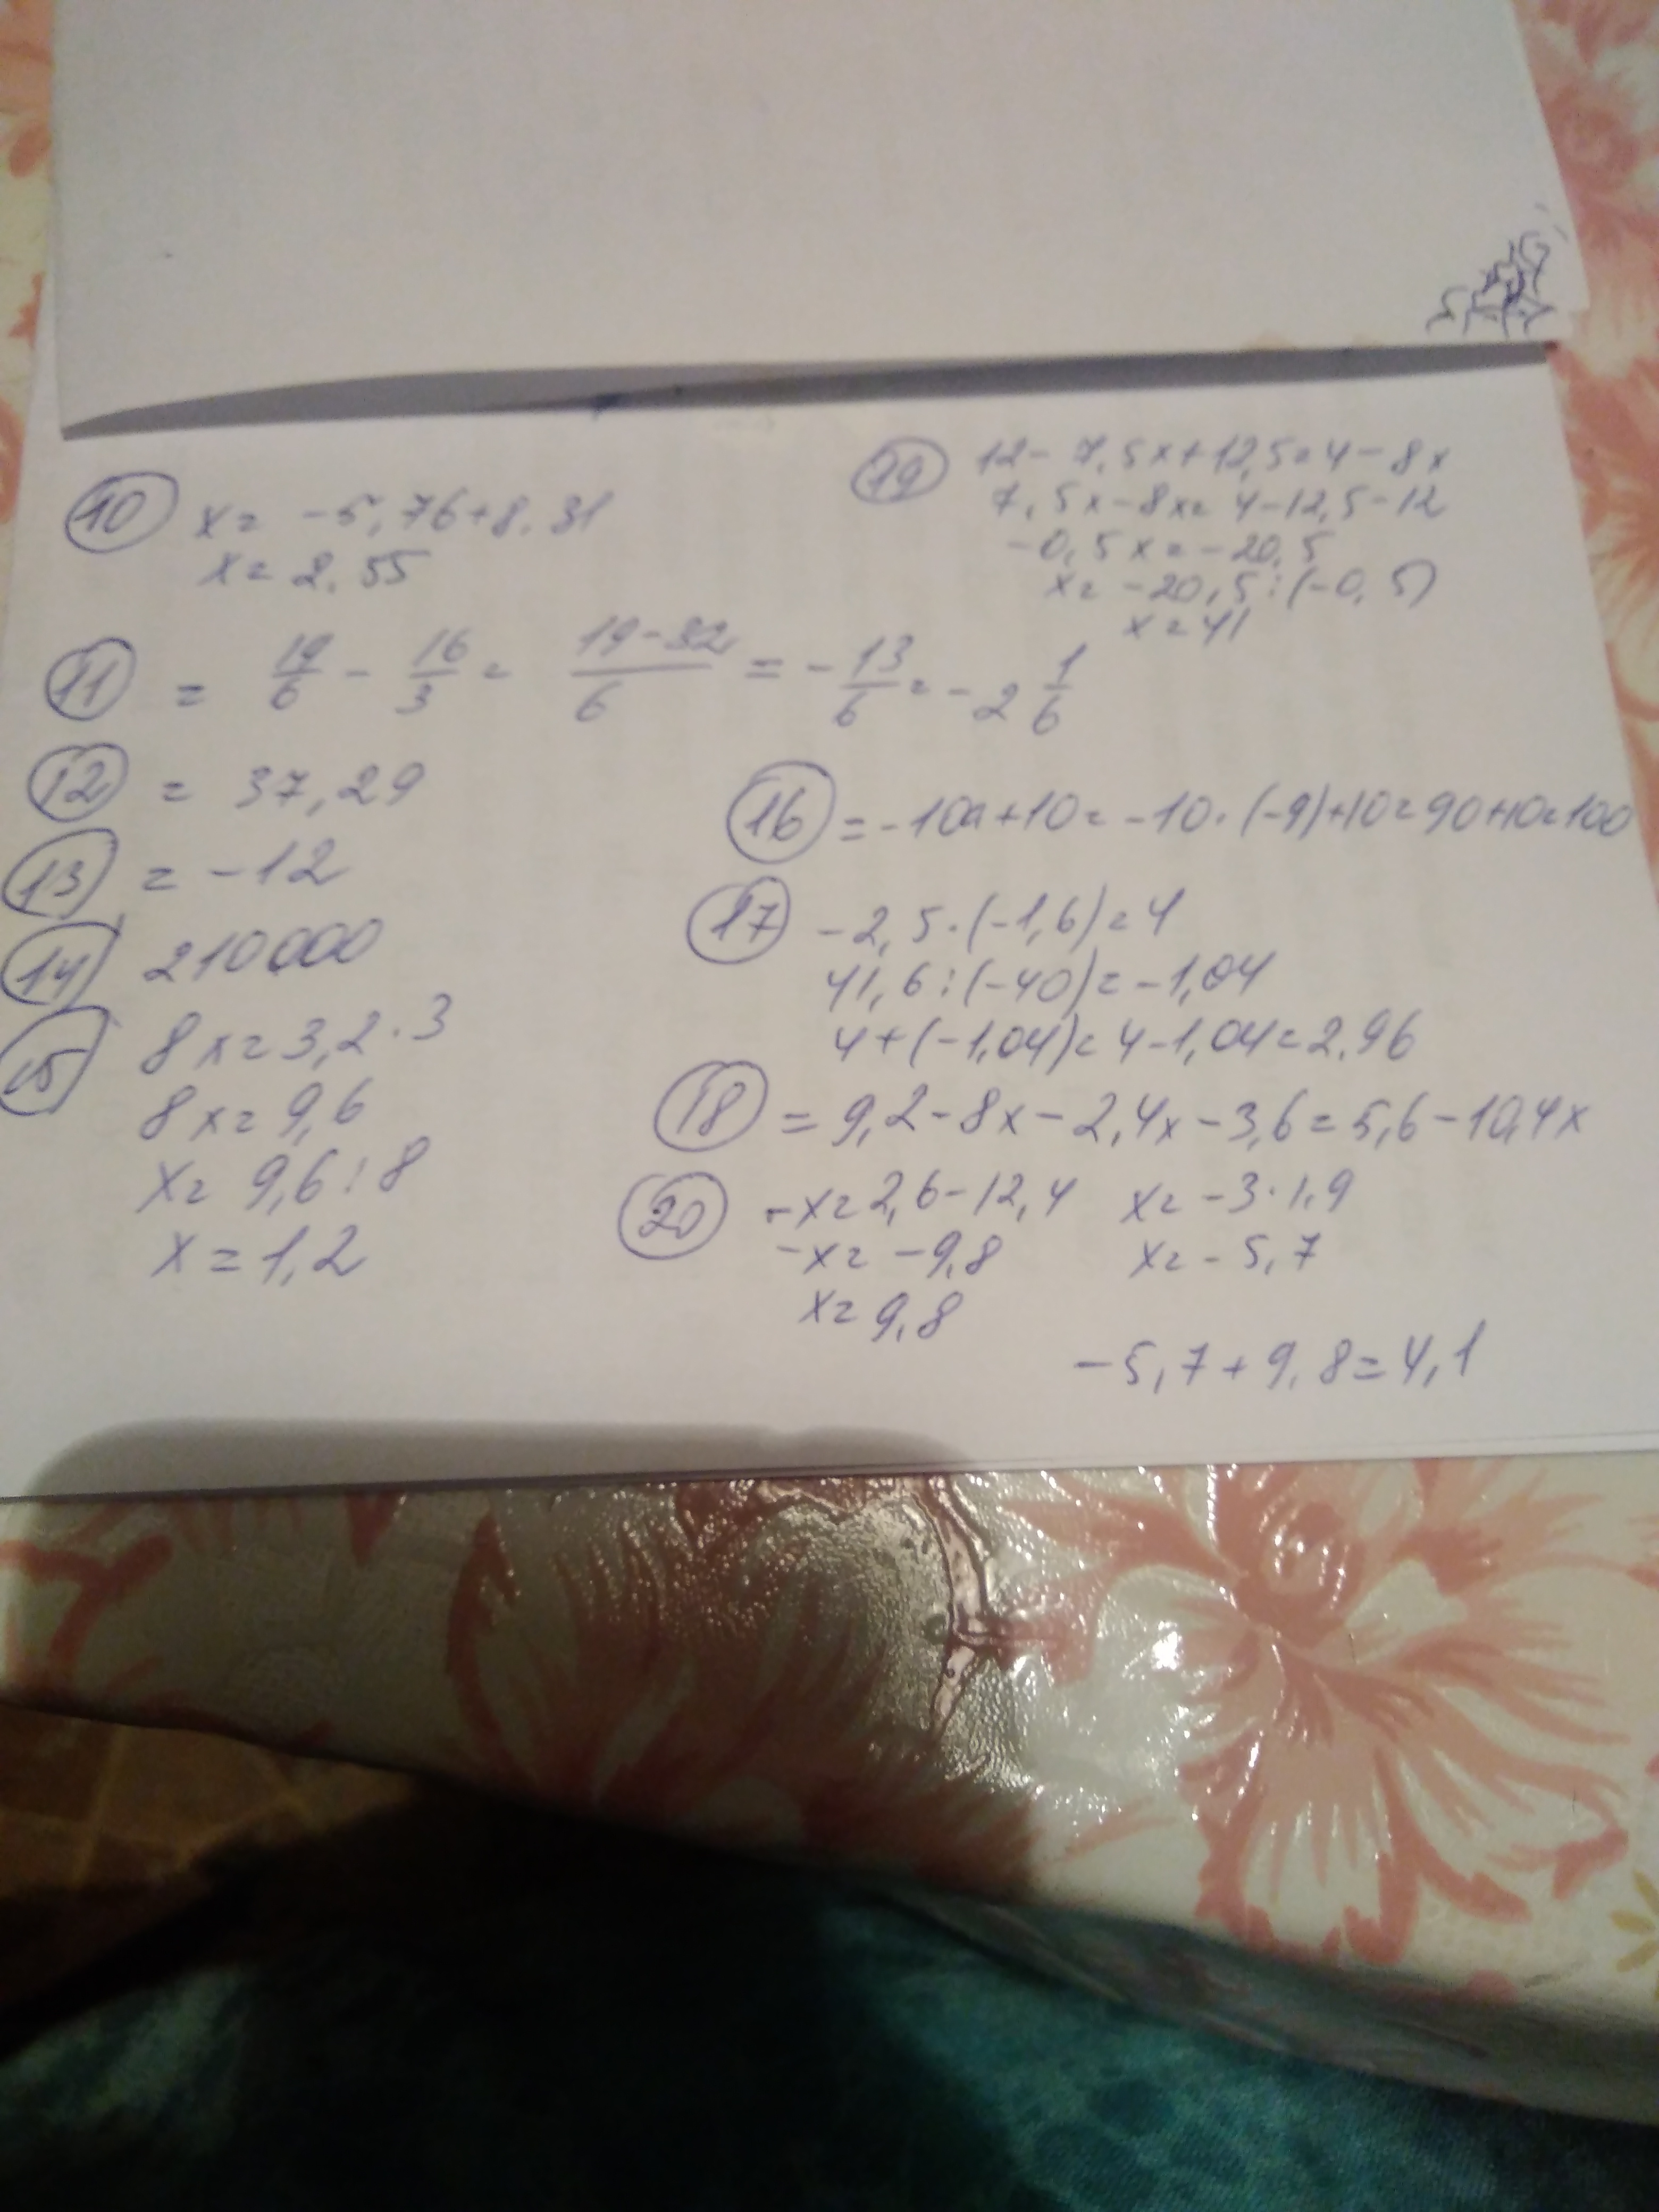 10 x = -5,76+8,31
x = 2,55
19 12 - 7,5x+12,5=4-8x
7,5x-8x=4-12,5-12
-0,5x=-20,5
x=-20,5:(-0,5)
x=41
11 = 19/6 - 16/3 = 19-32/6 = -13/6 = -2 1/6
12 = 37,29
13 = -12
14 210000
15 8x=3,2·3
8x=9,6
x=9,6:8
x=1,2
16 =-10a+10=-10·(-9)+10=90+10=100
17 -2,5·(-1,6)=4
41,6:(-40)=-1,04
4+(-1,04)=4-1,04=2,96
18 = 9,2-8x-2,4x-3,6=5,6-10,4x
20 -x=2,6-12,4
-x=-9,8
x=9,8
x=-3·1,9
x=-5,7
-5,7+9,8=4,1